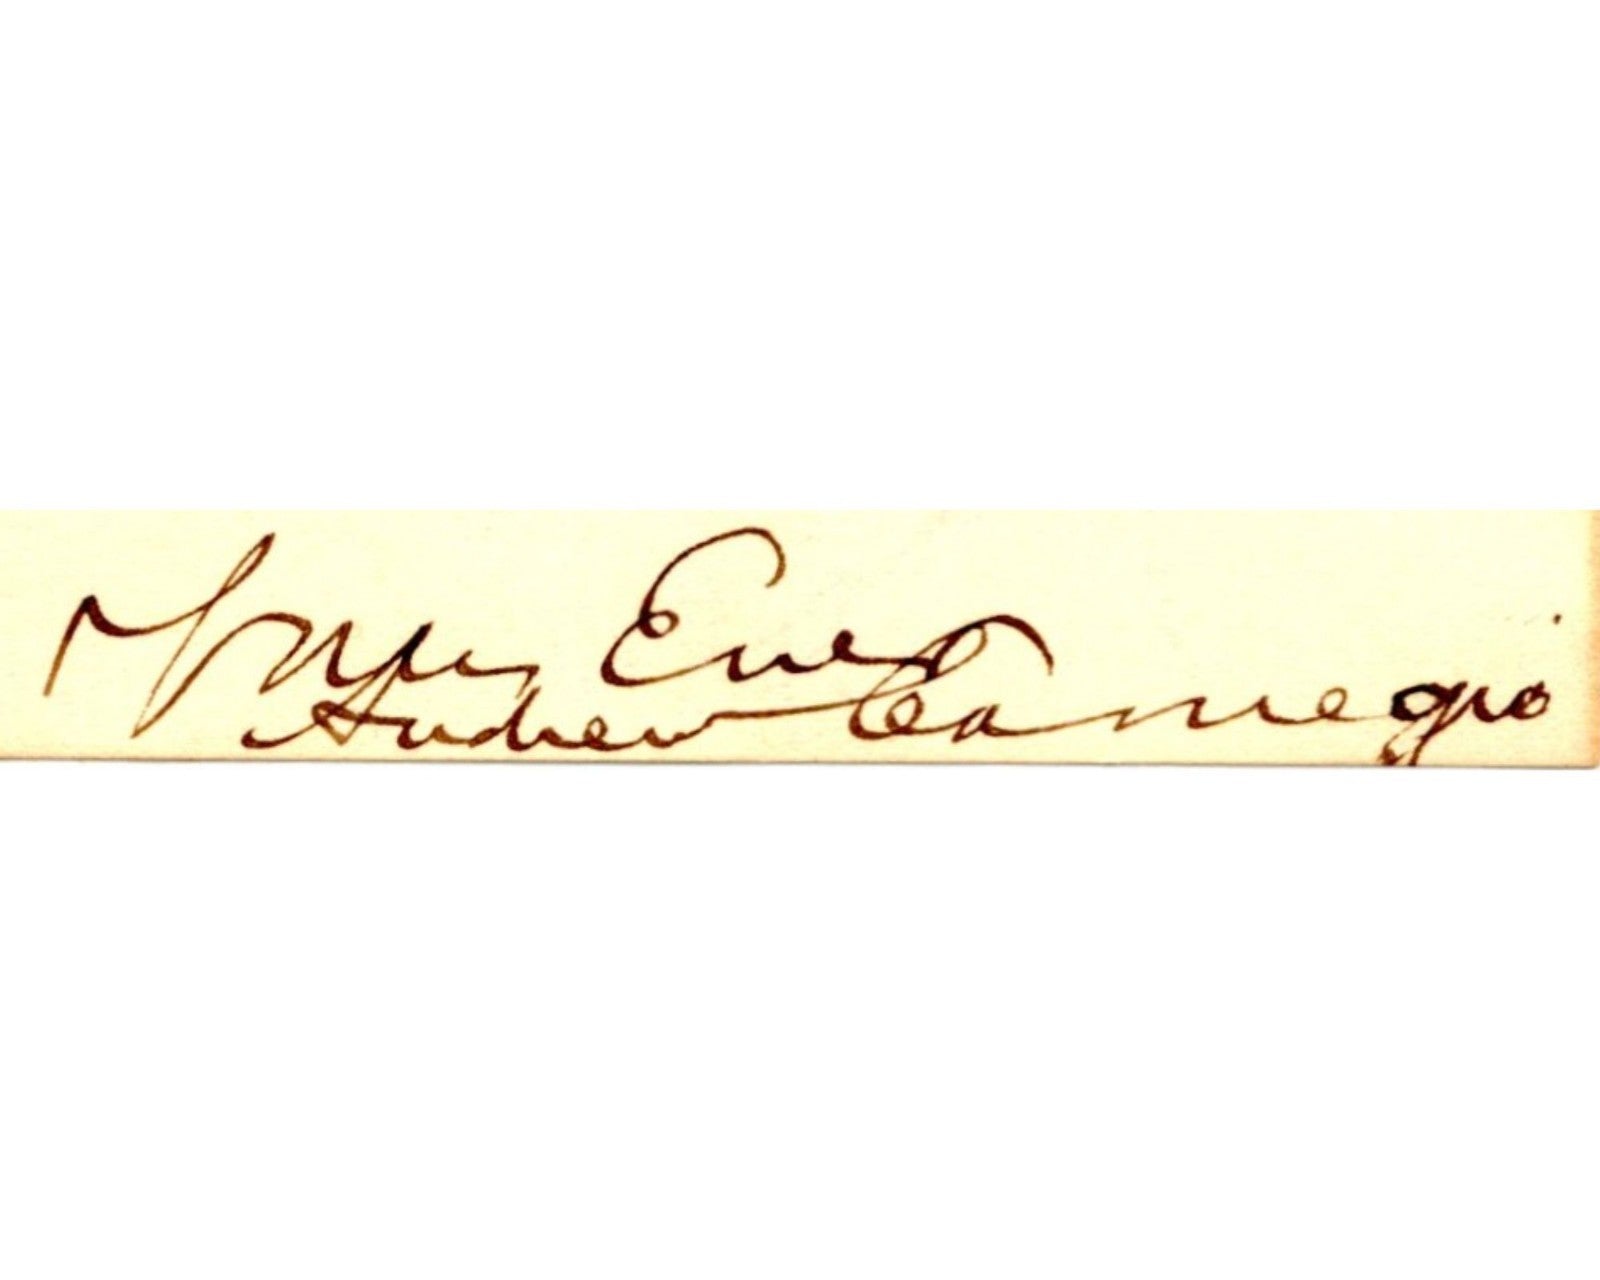 Yours Ever
Andrew Carnegie